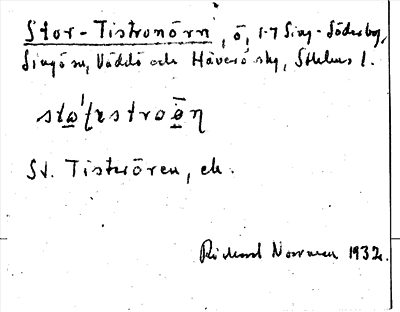 Stor-Tistronörn, ö, 1-7 Sing-Söderby,
Singö sn, Väddö och Häverö skg, Sthlms l.
St. Tiströren, ek.
Rickard Norrman 1932.